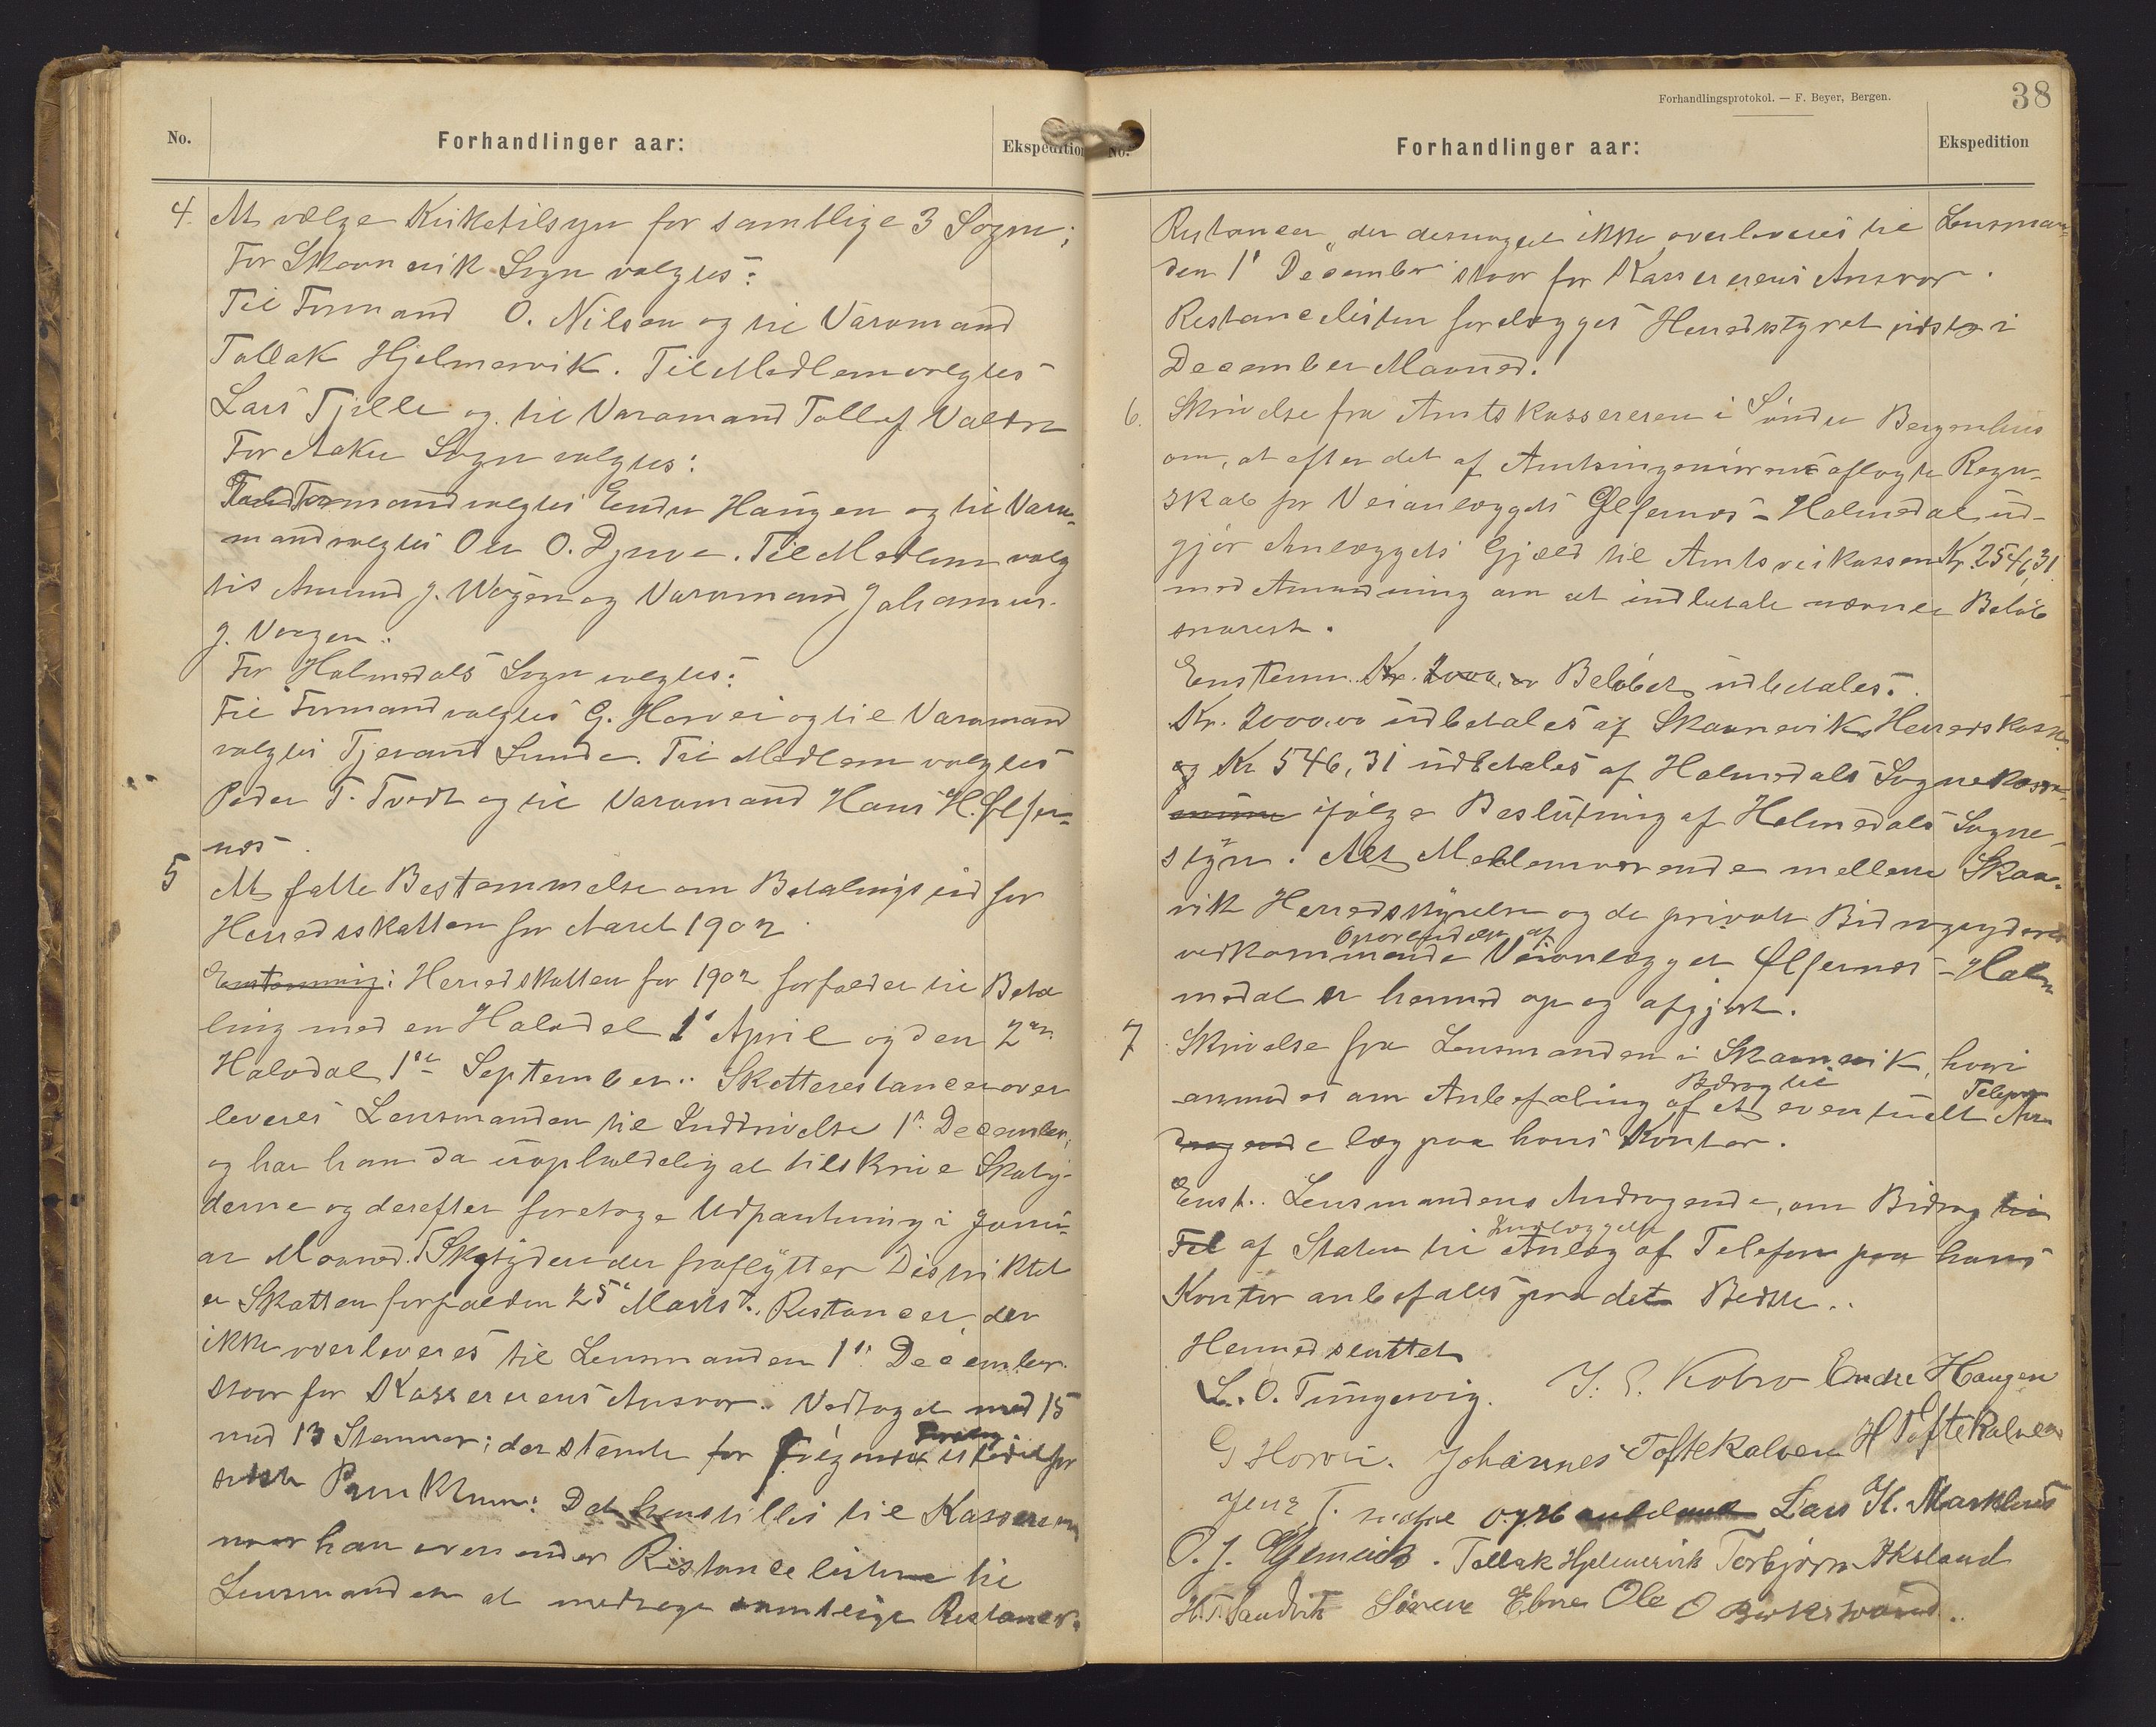 No.
Forhandlinger aar:
Ekspedition
4. At vælge Kirketilsyn for samtlige 3 Sogn;
For Skaanevik Sogn valgtes:
Til Formand O. Nilsen og til Varamand
Tallak Hjelmervik. Til Medlem valgtes
Lars Tjelle og til Varamand Tollef Valen
For Aakre Sogn valgtes:
Formand valgtes Endre Haugen og til Vara-
mand valgtes Ole O. Djuve. Til Medlem valg
tes Amund J. Vaagen og Varamand Johannes
J. Vaagen.
For Holmedals Sogn valgtes:
Til Formand valgtes G. Horvei og til Varamand
valgtes Tjerand Lunde. Til Medlem valgtes
Peder T. Tvedt og til Varamand Hans H. Ølfer-
nes.
5 At fatte Bestemmelse om Betalingstid for
Herredsskatten for Aaret 1902.
Enstemmig: Herredskatten for 1902 forfalder til Beta
ling med en Halvdel 1ste April og den 2den
Halvdel 1ste September. Skatterestancer over
leveres Lensmanden til Inddrivelse 1ste December,
og har han da uopholdelig at tilskrive Skaty-
derne og derefter foretage Udpantning i Janu-
ar Maaned. Skatyder der fraflytter Distriktet
er Skatten forfalden 25de Marts. Restancer, der
ikke overleveres til Lensmanden 1ste December
staar for Kassererens Ansvar. Vedtaget med 15
mod 13 Stemmer; der stemte for
sidste Punktum: Det henstilles til Kassereren
naar han oversender Restancelisten til
Lensmanden at medtage samtlige Restancer.
Forhandlingsprotokol. — F. Beyer, Bergen.
38
No.
Forhandlinger aar:
Ekspedition
Restancer, der desuagtet ikke overleveres til Lensman-
den 1ste December staar for Kassererens Ansvar.
Restancelisten forelægges Herredsstyret sidst i
December Maaned.
6. Skrivelse fra Amtskassereren i Søndre Bergenhus
om, at efter det af Amtsingeniøren aflagte Regn-
skab for Veianlægget Ølfernes – Holmedal ud-
gjør Anlæggets Gjæld til Amtsveikassen Kr. 2546,31
med Anmodning om at indbetale nævnte Beløb
snarest.
Enstem. Kr. 2000,00 Beløbet udbetales.
Kr. 2000,00 udbetales af Skaanevik Herredskasse
og Kr 546,31 udbetales af Holmedals Sognekasse
ifølge Beslutning af Holmedals Sogne-
styre. Alt Mellemværende mellem Skaane-
vik Herredsstyrelse og de private Bidragsydere
Oparbeidelse af
vedkommende Veianlægget Ølfernes – Holm
medal er hermed op og afgjort.
7 Skrivelse fra Lensmanden i Skaanevik, hvori
Bidrag til Telefon
anmodes om Anbefaling af et eventuelt An
læg paa hans Kontor.
Enst. Lensmandens Andragende, om Bidrag til
Indlæggelse
Tel af Staten til Anlæg af Telefon paa hans
Kontor anbefales paa det Bedste.
Hermed sluttet
L. O. Tungesvig. J. E. Kobro Endre Haugen
G Horvei. Johannes Toftekalven H Toftekalven
Jens T. Lars H. Markhus
O. J. Tallak Hjelmervik Torbjørn Aksland
H. T. Sandvik Søren Ebne Ole O